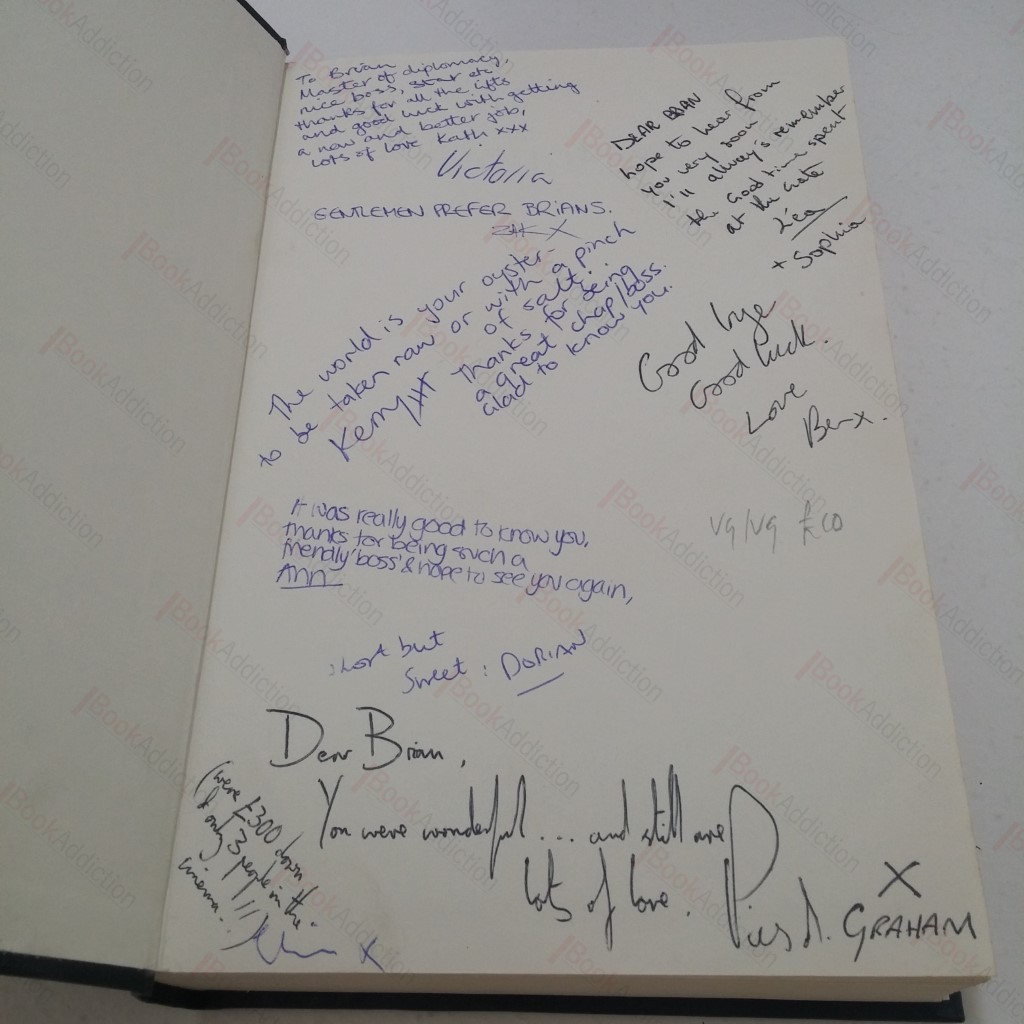 To Brian
Master of diplomacy,
nice boss, star etc
thanks for all the lifts
and good luck with getting
a new and better job,
Lots of love Kath xxx
Victoria
GENTLEMEN PREFER BRIANS.
X
DEAR BRIAN
hope to hear from
you very soon
I'll allways remember
the Good time spent
at the Gate
Léa
+ Sophia
The world is your oyster-
to be taken raw or with a pinch
of salt...
Kerry
Thanks for being
a great chap/boss.
Glad to know you.
Good bye
Good Luck.
Love
Ben x.
VG/VG £20
It was really good to know you,
thanks for being such a
friendly 'boss' & hope to see you again,
Ann
short but
Sweet: DORIAN
Dear Brian,
You were wonderful... and still are
lots of love.
Piers D. GRAHAM
X
(were £300 down
& only 3 people in the
cinema..!!!
X
BookAddiction